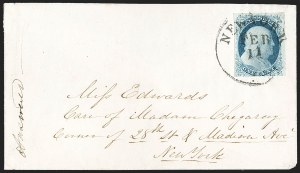 NEW YORK
FEB
11
Miss Edwards
Care of Madam Chegaray
Corner of 28th St & Madison Ave
New York